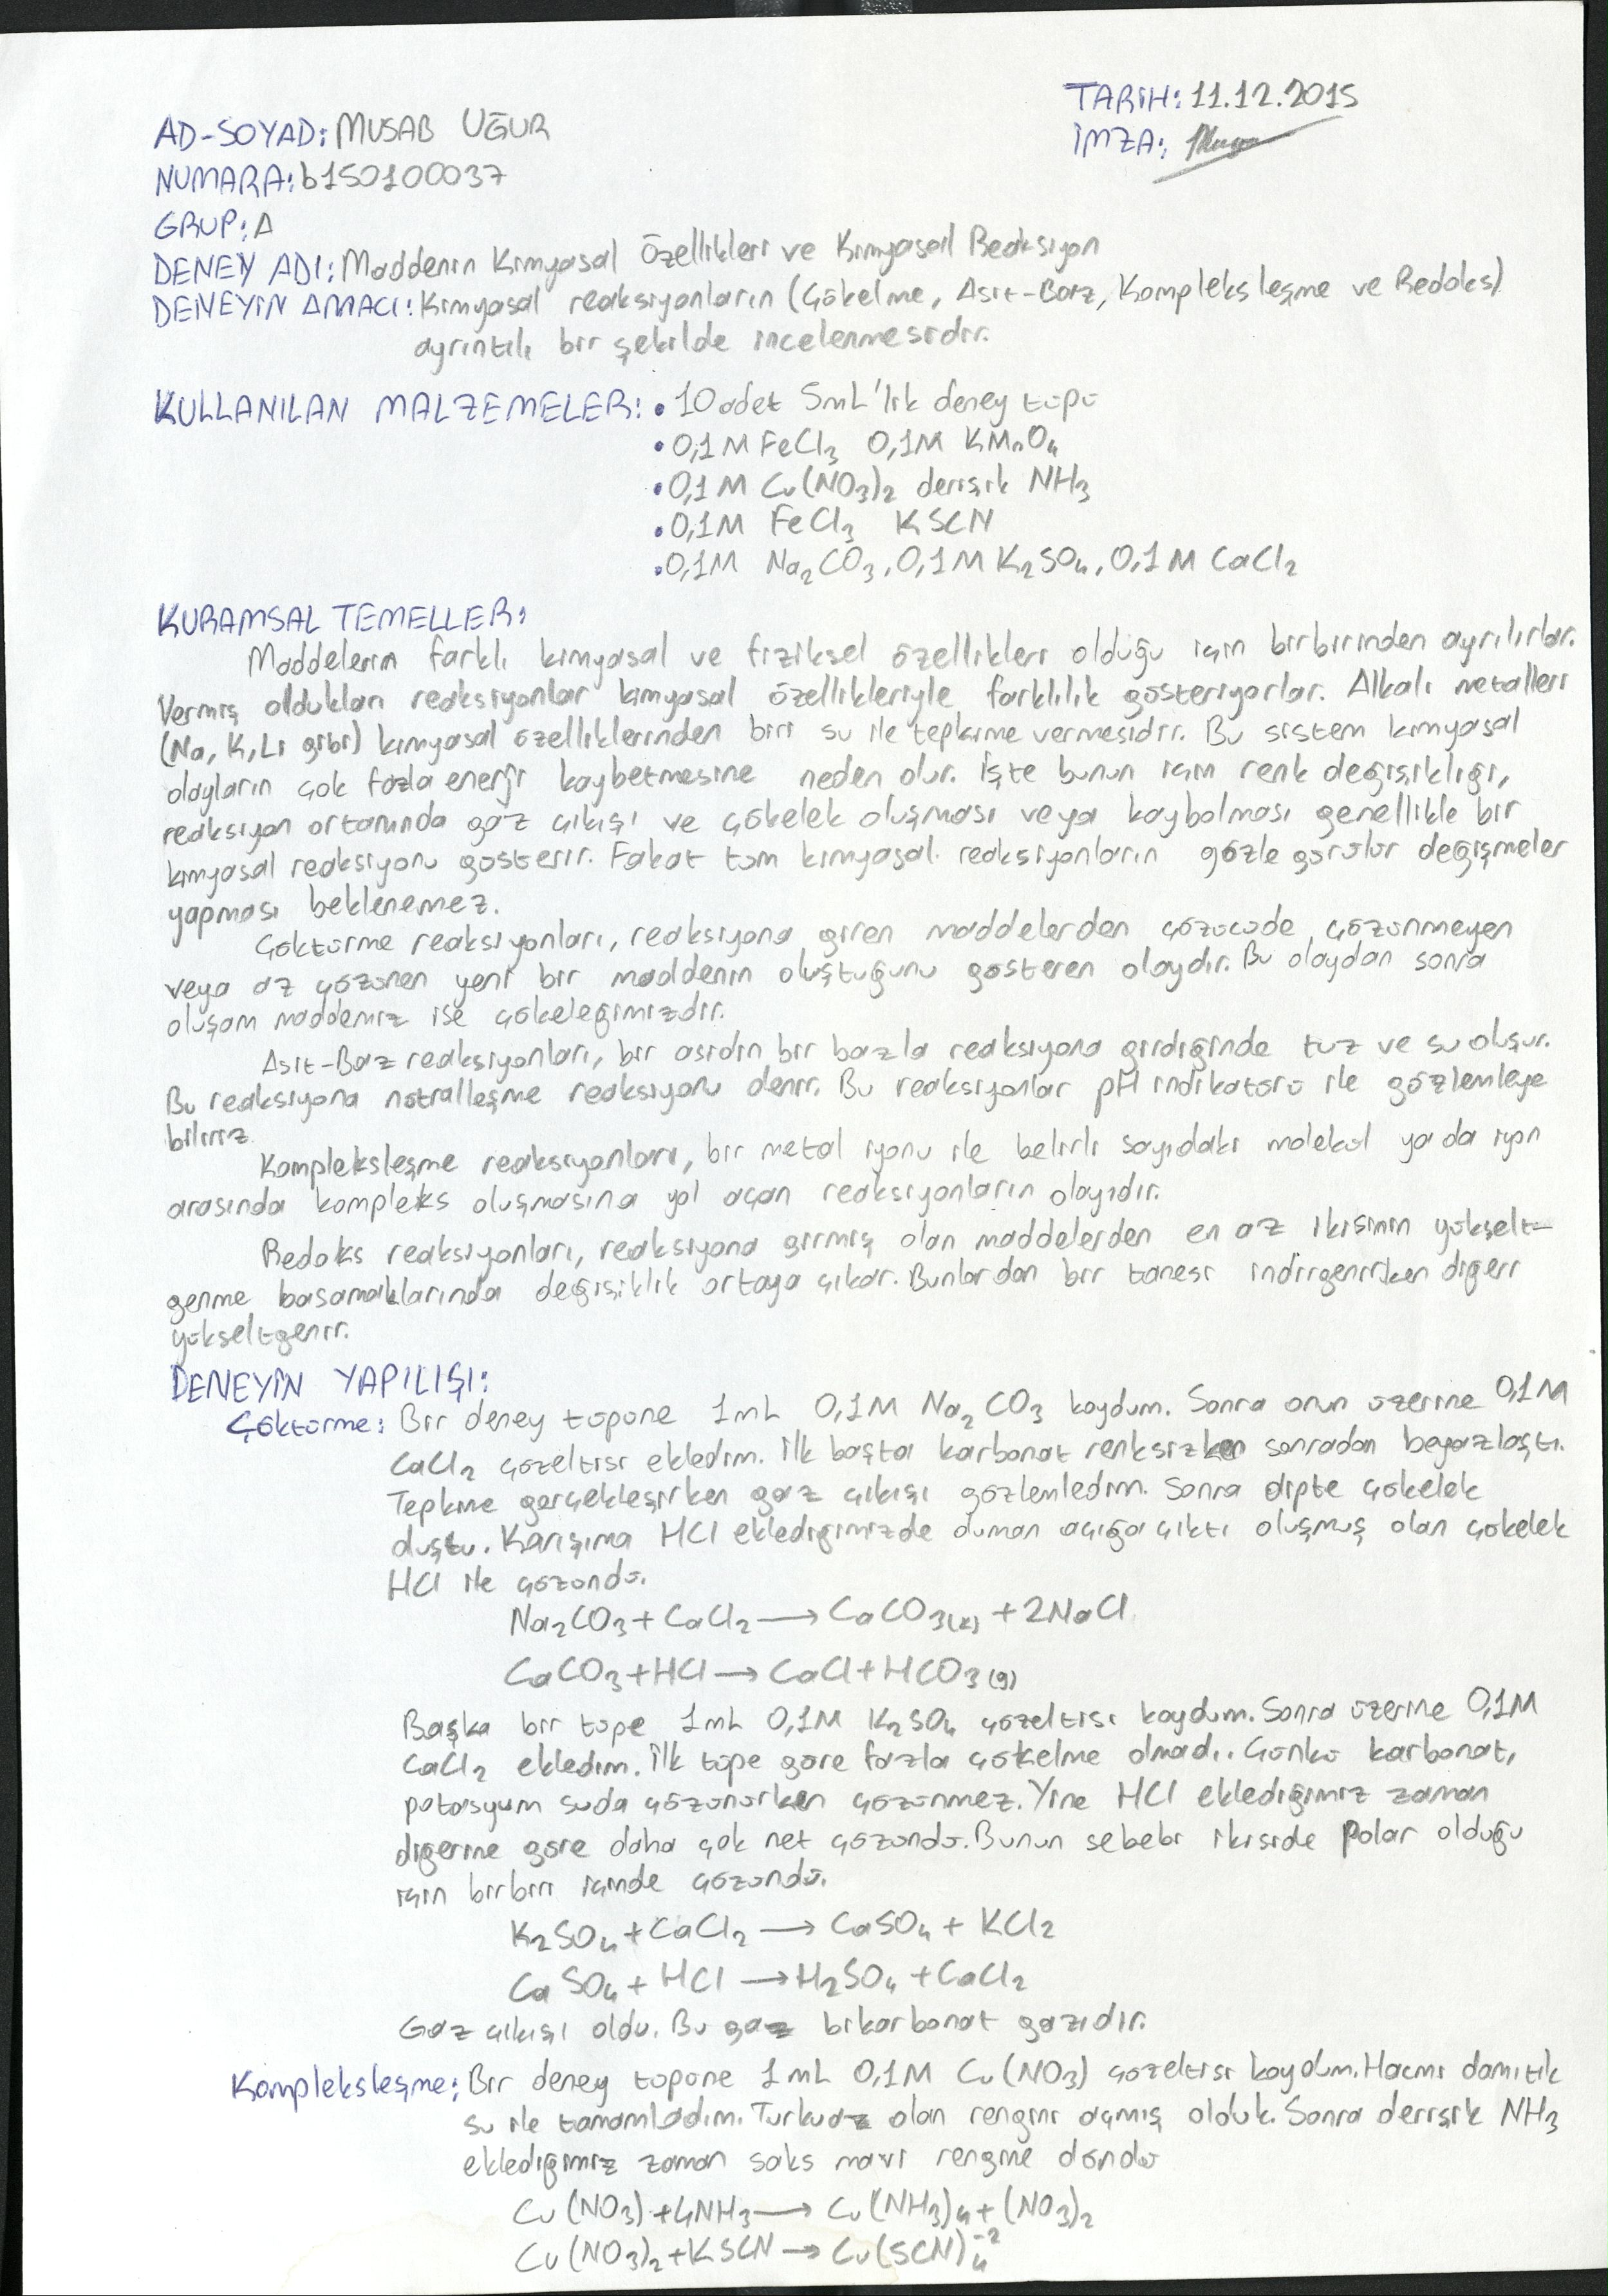 TARİH: 11.12.2015
AD-SOYAD: MUSAB UĞUR
İMZA:
NUMARA: b150100037
GRUP: A
DENEY ADI: Maddenin Kimyasal Özellikleri ve Kimyasal Reaksiyon
DENEYİN AMACI: Kimyasal reaksiyonların (Çökelme, Asit-Baz, Kompleksleşme ve Redoks)
ayrıntılı bir şekilde incelenmesidir.
KULLANILAN MALZEMELER: • 10 adet 5mL'lik deney tüpü
• 0,1 M FeCl₃ 0,1M KMnO₄
• 0,1 M Cu(NO₃)₂ derişik NH₃
• 0,1M FeCl₃ KSCN
• 0,1M Na₂CO₃, 0,1M K₂SO₄, 0,1M CaCl₂
KURAMSAL TEMELLER:
Maddelerin farklı kimyasal ve fiziksel özellikleri olduğu için birbirinden ayrılırlar.
Vermiş oldukları reaksiyonlar kimyasal özellikleriyle farklılık gösteriyorlar. Alkali metalleri
(Na, K, Li gibi) kimyasal özelliklerinden biri su ile tepkime vermesidir. Bu sistem kimyasal
olayların çok fazla enerji kaybetmesine neden olur. İşte bunun için renk değişikliği,
reaksiyon ortamında gaz çıkışı ve çökelek oluşması veya kaybolması genellikle bir
kimyasal reaksiyonu gösterir. Fakat tüm kimyasal reaksiyonların gözle görülür değişmeler
yapması beklenemez.
Çöktürme reaksiyonları, reaksiyona giren maddelerden çözücüde çözünmeyen
veya az çözünen yeni bir maddenin oluştuğunu gösteren olaydır. Bu olaydan sonra
oluşam maddemiz ise çökeleğimizdir.
Asit-Baz reaksiyonları, bir asidin bir bazla reaksiyona girdiğinde tuz ve su oluşur.
Bu reaksiyona nötralleşme reaksiyonu denir. Bu reaksiyonlar pH indikatörü ile gözlemleye
biliriz
Kompleksleşme reaksiyonları, bir metal iyonu ile belirli sayıdaki molekül ya da iyon
arasında kompleks oluşmasına yol açan reaksiyonların olayıdır.
Redoks reaksiyonları, reaksiyona girmiş olan maddelerden en az ikisinin yükselt-
genme basamaklarında değişiklik ortaya çıkar. Bunlardan bir tanesi indirgenirken diğeri
yükseltgenir.
DENEYİN YAPILIŞI:
Çöktürme: Bir deney tüpüne 1mL 0,1M Na₂CO₃ koydum. Sonra onun üzerine 0,1M
CaCl₂ çözeltisi ekledim. İlk başta karbonat renksizken sonradan beyazlaştı.
Tepkime gerçekleşirken gaz çıkışı gözlemledim. Sonra dipte çökelek
düştü. Karışıma HCl eklediğimizde duman açığa çıktı oluşmuş olan çökelek
HCl ile çözündü.
Na₂CO₃ + CaCl₂ → CaCO₃(k) + 2NaCl
CaCO₃ + HCl → CaCl + HCO₃(g)
Başka bir tüpe 1mL 0,1M K₂SO₄ çözeltisi koydum. Sonra üzerine 0,1M
CaCl₂ ekledim. İlk tüpe göre fazla çökelme olmadı. Çünkü karbonat,
potasyum suda çözünürken çözünmez. Yine HCl eklediğimiz zaman
diğerine göre daha çok net çözündü. Bunun sebebi ikiside Polar olduğu
için birbiri içinde çözündü.
K₂SO₄ + CaCl₂ → CaSO₄ + KCl₂
CaSO₄ + HCl → H₂SO₄ + CaCl₂
Gaz çıkışı oldu. Bu gaz bikarbonat gazıdır.
Kompleksleşme: Bir deney tüpüne 1mL 0,1M Cu(NO₃) çözeltisi koydum. Hacmi damıtık
su ile tamamladım. Turkuaz olan rengini açmış olduk. Sonra derişik NH₃
eklediğimiz zaman saks mavi rengine döndü
Cu(NO₃) + 4NH₃ → Cu(NH₃)₄ + (NO₃)₂
Cu(NO₃)₂ + KSCN → Cu(SCN)₄⁻²